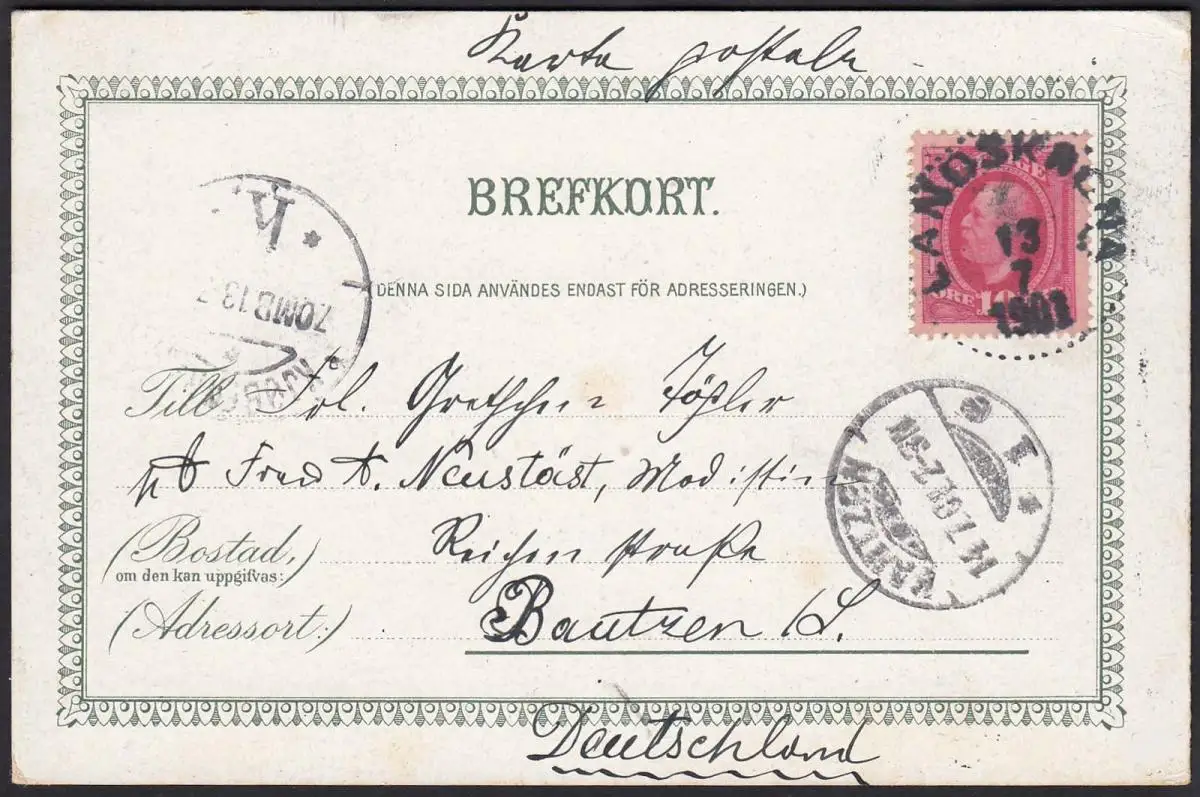 Karta postale
BREFKORT.
(DENNA SIDA ANVÄNDES ENDAST FÖR ADRESSERINGEN.)
LANDSKRONA
13
7
1901
ÖRE 10
K.
70MB 13 7
Till Frl. Gretschen
Frau A. Neustäst, Modistin
(Bostad,)
om den kan uppgifvas:
Reichenstraße
(Adressort:)
Bautzen /S.
BAUTZEN
14.7.01.7-8N
1
Deutschland